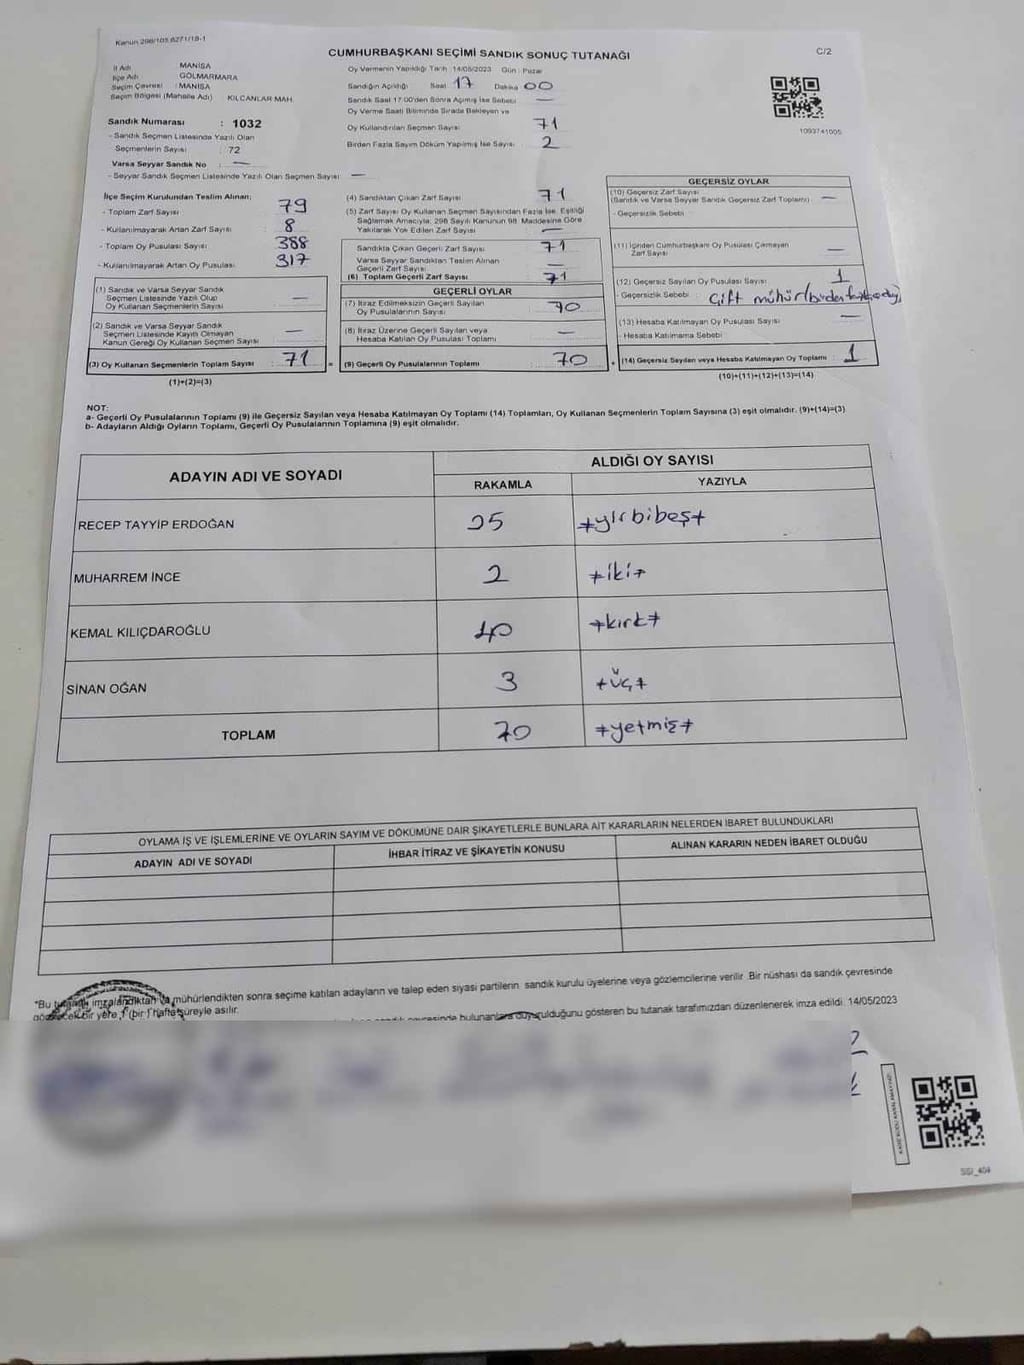 Kanun 298/105,6271/18-1
CUMHURBAŞKANI SEÇİMİ SANDIK SONUÇ TUTANAĞI
C/2
İl Adı MANİSA
İlçe Adı GÖLMARMARA
Seçim Çevresi : MANİSA
Seçim Bölgesi (Mahalle Adı) KILCANLAR MAH.
Sandık Numarası : 1032
- Sandık Seçmen Listesinde Yazılı Olan
Seçmenlerin Sayısı : 72
Varsa Seyyar Sandık No : —
- Seyyar Sandık Seçmen Listesinde Yazılı Olan Seçmen Sayısı : —
Oy Vermenin Yapıldığı Tarih : 14/05/2023 Gün : Pazar
Sandığın Açıldığı Saat 17 Dakika 00
Sandık Saat 17:00'den Sonra Açılmış İse Sebebi —
Oy Verme Saati Bitiminde Sırada Bekleyen ve
Oy Kullandırılan Seçmen Sayısı 71
Birden Fazla Sayım Döküm Yapılmış İse Sayısı 2
1093741005
İlçe Seçim Kurulundan Teslim Alınan;
- Toplam Zarf Sayısı : 79
- Kullanılmayarak Artan Zarf Sayısı : 8
- Toplam Oy Pusulası Sayısı : 388
- Kullanılmayarak Artan Oy Pusulası : 317
(1) Sandık ve Varsa Seyyar Sandık
Seçmen Listesinde Yazılı Olup
Oy Kullanan Seçmenlerin Sayısı —
(2) Sandık ve Varsa Seyyar Sandık
Seçmen Listesinde Kayıtlı Olmayan
Kanun Gereği Oy Kullanan Seçmen Sayısı —
(3) Oy Kullanan Seçmenlerin Toplam Sayısı : 71
(1)+(2)=(3)
(4) Sandıktan Çıkan Zarf Sayısı 71
(5) Zarf Sayısı Oy Kullanan Seçmen Sayısından Fazla İse, Eşitliği
Sağlamak Amacıyla; 298 Sayılı Kanunun 98. Maddesine Göre
Yakılarak Yok Edilen Zarf Sayısı —
Sandıkta Çıkan Geçerli Zarf Sayısı 71
Varsa Seyyar Sandıktan Teslim Alınan
Geçerli Zarf Sayısı —
(6) Toplam Geçerli Zarf Sayısı 71
GEÇERLİ OYLAR
(7) İtiraz Edilmeksizin Geçerli Sayılan
Oy Pusulalarının Sayısı 70
(8) İtiraz Üzerine Geçerli Sayılan veya
Hesaba Katılan Oy Pusulası Toplamı —
= (9) Geçerli Oy Pusulalarının Toplamı 70
GEÇERSİZ OYLAR
(10) Geçersiz Zarf Sayısı
(Sandık ve Varsa Seyyar Sandık Geçersiz Zarf Toplamı) —
- Geçersizlik Sebebi :
(11) İçinden Cumhurbaşkanı Oy Pusulası Çıkmayan
Zarf Sayısı —
(12) Geçersiz Sayılan Oy Pusulası Sayısı 1
- Geçersizlik Sebebi : Çift mühür
(13) Hesaba Katılmayan Oy Pusulası Sayısı —
- Hesaba Katılmama Sebebi
+ (14) Geçersiz Sayılan veya Hesaba Katılmayan Oy Toplamı : 1
(10)+(11)+(12)+(13)=(14)
NOT:
a- Geçerli Oy Pusulalarının Toplamı (9) ile Geçersiz Sayılan veya Hesaba Katılmayan Oy Toplamı (14) Toplamları, Oy Kullanan Seçmenlerin Toplam Sayısına (3) eşit olmalıdır. (9)+(14)=(3)
b- Adayların Aldığı Oyların Toplamı, Geçerli Oy Pusulalarının Toplamına (9) eşit olmalıdır.
ADAYIN ADI VE SOYADI
ALDIĞI OY SAYISI
RAKAMLA YAZIYLA
RECEP TAYYİP ERDOĞAN 25 +yirbibeş+
MUHARREM İNCE 2 +iki+
KEMAL KILIÇDAROĞLU 40 +kırk+
SİNAN OĞAN 3 +üç+
TOPLAM 70 +yetmiş+
OYLAMA İŞ VE İŞLEMLERİNE VE OYLARIN SAYIM VE DÖKÜMÜNE DAİR ŞİKAYETLERLE BUNLARA AİT KARARLARIN NELERDEN İBARET BULUNDUKLARI
ADAYIN ADI VE SOYADI İHBAR İTİRAZ VE ŞİKAYETİN KONUSU ALINAN KARARIN NEDEN İBARET OLDUĞU
*Bu tutanak imzalandıktan ve mühürlendikten sonra seçime katılan adayların ve talep eden siyasi partilerin sandık kurulu üyelerine veya gözlemcilerine verilir. Bir nüshası da sandık çevresinde
görülecek bir yere 1 (bir) hafta süreyle asılır.
bulunanlara duyurulduğunu gösteren bu tutanak tarafımızdan düzenlenerek imza edildi. 14/05/2023
SSI_404